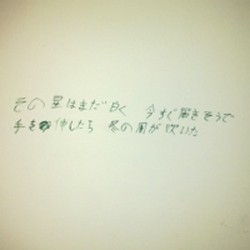 その星はまだ白く 今すぐ届きそうで
手を伸したら 冬の風が吹いた